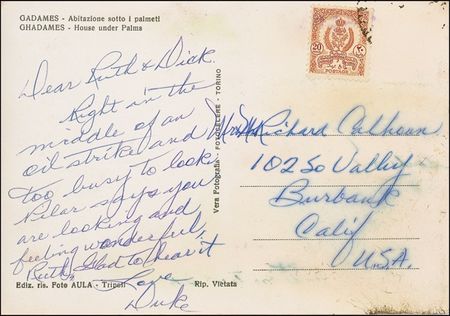 GADAMES - Abitazione sotto i palmeti
GHADAMES - House under Palms
Dear Ruth & Dick
Right in the
middle of an
oil strike and
too busy to look
Pilar says you
are looking and
feeling wonderful,
Ruth, Glad to hear it
Love
Duke
Ediz. ris. Foto AULA - Tripoli
Rip. Vietata
Vera Fotografia - FOTOCELERE - TORINO
20
٢٠
POSTAGE
Richard Calhoun
102 So Valley
Burbank
Calif
U.S.A.